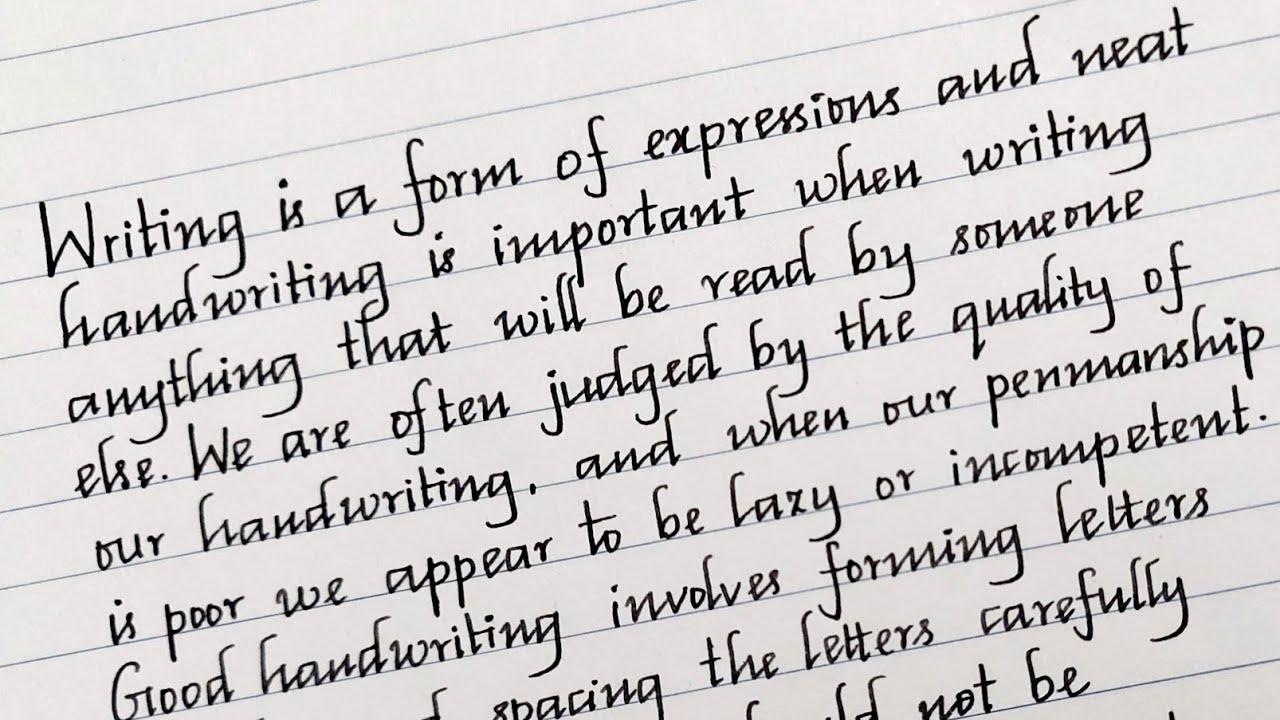 Writing is a form of expressions and neat
handwriting is important when writing
anything that will be read by someone
else. We are often judged by the quality of
our handwriting, and when our penmanship
is poor we appear to be lazy or incompetent.
Good handwriting involves forming letters
spacing the letters carefully
not be